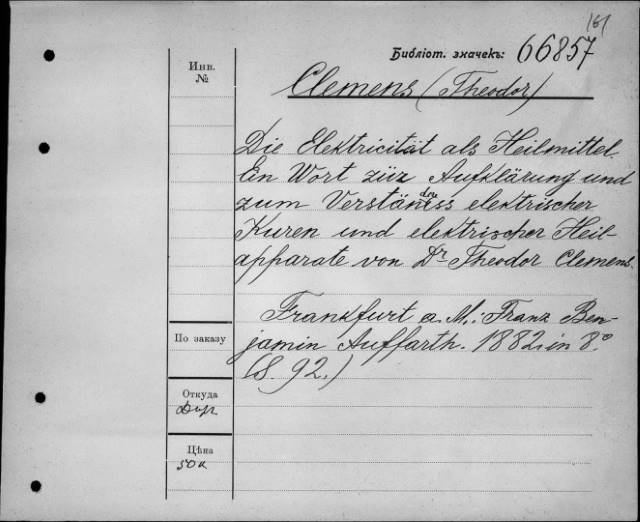 161
Библіот. значекъ: 66857
Инв.
№
Clemens (Theodor)
Die Elektricität als Heilmittel.
Ein Wort züz Aufklärung und
zum Verständness elektrischer
Kuren und elektrischer Heil-
apparate von Dr Theodor Clemens.
Frankfurt a. M.: Franz Ben-
jamin Auffarth. 1882. in 8.°
(S. 92.)
По заказу
Откуда
Дир
Цѣна
50 к